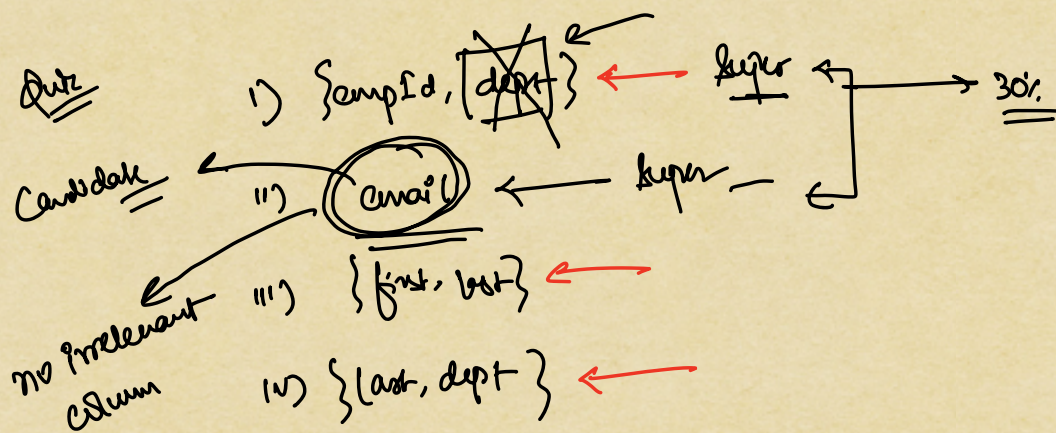 Quiz i) {empId, dept} super 30%
Candidate ii) email super
iii) {first, last}
no irrelevant
column iv) {last, dept}